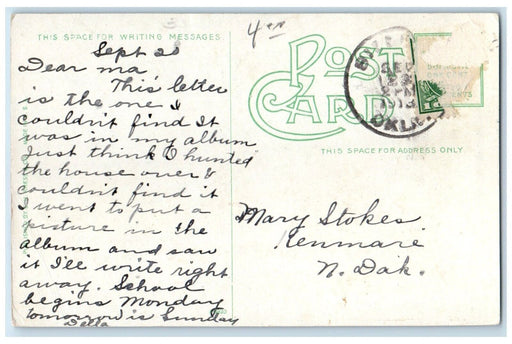 THIS SPACE FOR WRITING MESSAGES
Sept 20
Dear ma
This letter
is the one I
couldn't find It
was in my album
Just think I hunted
the house over &
couldn't find it
I went to put a
picture in the
album and saw
it I'll write right
away. School
begins Monday
tomorrow is Sunday
Della
POST
CARD
SEP
2 PM
1913
OKLA.
THIS SPACE FOR ADDRESS ONLY
Mary Stokes
Kenmare
N. Dak.